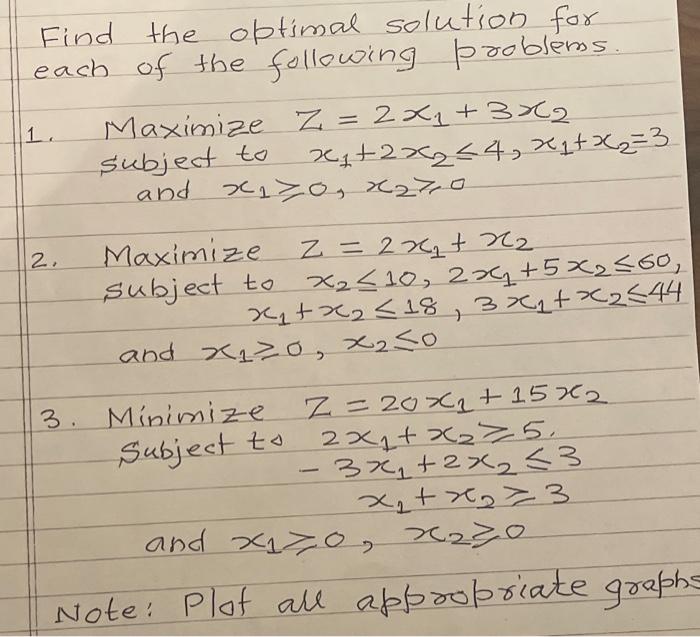 Find the optimal solution for
each of the following problems.
1. Maximize Z = 2x₁ + 3x₂
subject to x₁+2x₂≤4, x₁+x₂=3
and x₁≥0, x₂≥0
2. Maximize Z = 2x₁ + x₂
subject to x₂≤10, 2x₁+5x₂≤60,
x₁+x₂≤18, 3x₁+x₂≤44
and x₁≥0, x₂≤0
3. Minimize Z = 20x₁ + 15x₂
Subject to 2x₁+x₂≥5,
-3x₁+2x₂≤3
x₁+x₂≥3
and x₁≥0, x₂≥0
Note: Plot all appropriate graphs